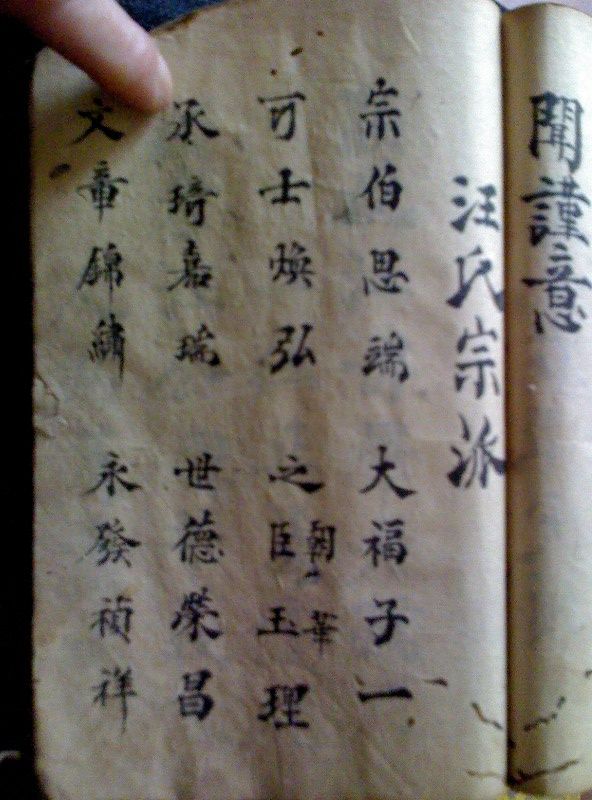 聞謹意
汪氏宗派
宗伯思端 大福子一
可士煥弘 之臣玉理
朝華
承琦嘉瑞 世德榮昌
文章錦繡 永發禎祥